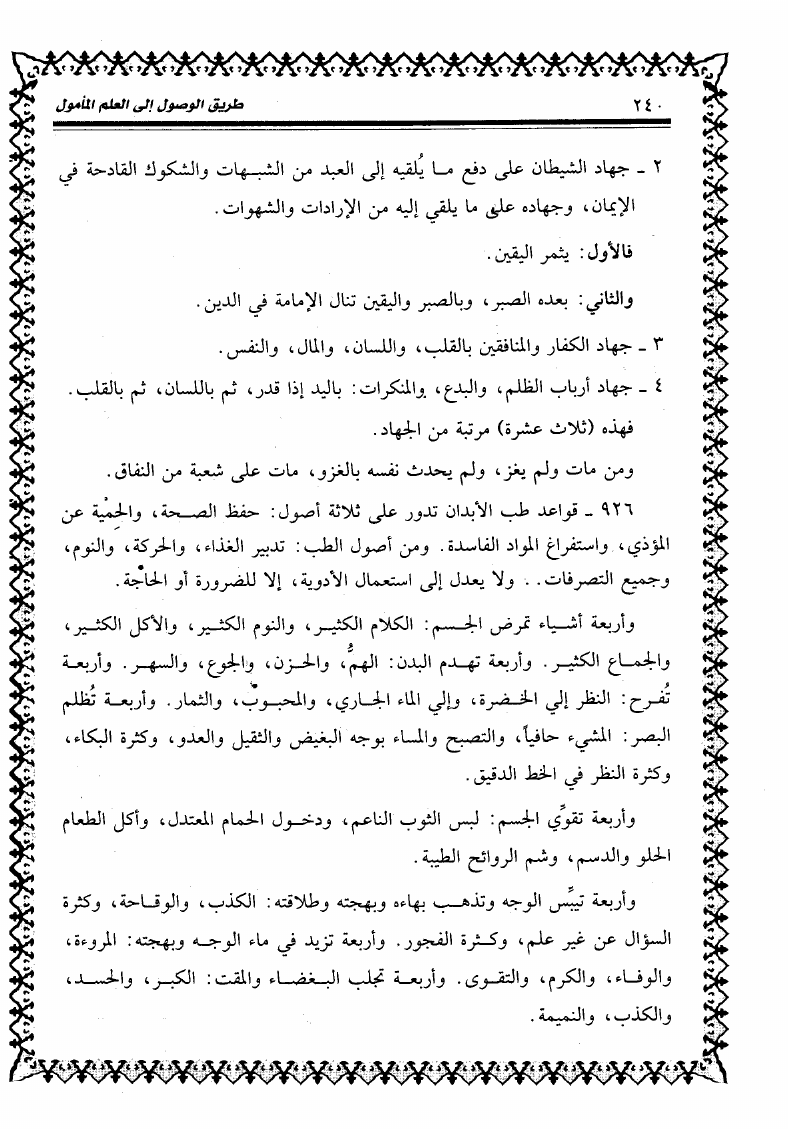 ٢٤٠ طريق الوصول إلى العلم المأمول
٢ ـ جهاد الشيطان على دفع ما يُلقيه إلى العبد من الشبهات والشكوك القادحة في
الإيمان، وجهاده على ما يلقي إليه من الإرادات والشهوات.
فالأول: يثمر اليقين.
والثاني: بعده الصبر، وبالصبر واليقين تنال الإمامة في الدين.
٣ ـ جهاد الكفار والمنافقين بالقلب، واللسان، والمال، والنفس.
٤ ـ جهاد أرباب الظلم، والبدع، والمنكرات: باليد إذا قدر، ثم باللسان، ثم بالقلب.
فهذه (ثلاث عشرة) مرتبة من الجهاد.
ومن مات ولم يغز، ولم يحدث نفسه بالغزو، مات على شعبة من النفاق.
٩٢٦ ـ قواعد طب الأبدان تدور على ثلاثة أصول: حفظ الصحة، والحِمْية عن
المؤذي، واستفراغ المواد الفاسدة. ومن أصول الطب: تدبير الغذاء، والحركة، والنوم،
وجميع التصرفات.. ولا يعدل إلى استعمال الأدوية، إلا للضرورة أو الحاجة.
وأربعة أشياء تمرض الجسم: الكلام الكثير، والنوم الكثير، والأكل الكثير،
والجماع الكثير. وأربعة تهدم البدن: الهمُّ، والحزن، والجوع، والسهر. وأربعة
تُفرح: النظر إلي الخضرة، وإلي الماء الجاري، والمحبوب، والثمار. وأربعة تُظلم
البصر: المشيء حافياً، والتصبح والمساء بوجه البغيض والثقيل والعدو، وكثرة البكاء،
وكثرة النظر في الخط الدقيق.
وأربعة تقوِّي الجسم: لبس الثوب الناعم، ودخول الحمام المعتدل، وأكل الطعام
الحلو والدسم، وشم الروائح الطيبة.
وأربعة تيبِّس الوجه وتذهب بهاءه وبهجته وطلاقته: الكذب، والوقاحة، وكثرة
السؤال عن غير علم، وكثرة الفجور. وأربعة تزيد في ماء الوجه وبهجته: المروءة،
والوفاء، والكرم، والتقوى. وأربعة تجلب البغضاء والمقت: الكبر، والحسد،
والكذب، والنميمة.